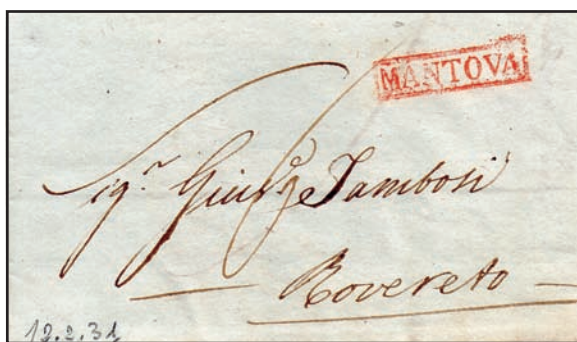 MANTOVA
Sig.r Gius.e Tambosi
Rovereto
12.2.31